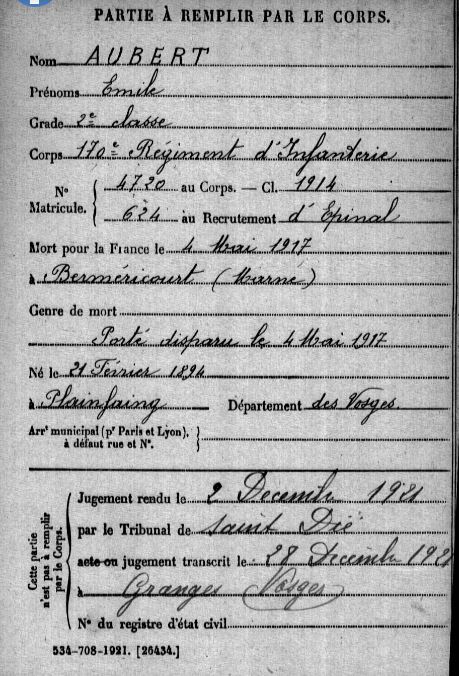 PARTIE À REMPLIR PAR LE CORPS.
Nom AUBERT
Prénoms Emile
Grade 2e classe
Corps 170e Régiment d'Infanterie
N° Matricule. { 4720 au Corps. — Cl. 1914
624 au Recrutement d'Epinal
Mort pour la France le 4 Mai 1917
à Berméricourt (Marne)
Genre de mort
Porté disparu le 4 Mai 1917
Né le 21 Février 1894
à Plainfaing Département des Vosges.
Arrt municipal (pr Paris et Lyon), }
à défaut rue et N°.
Cette partie n'est pas à remplir par le Corps. { Jugement rendu le 2 Decembre 1921
par le Tribunal de Saint Dié
acte ou jugement transcrit le 28 Decembre 1921
à Granges Vosges
N° du registre d'état civil
534-708-1921. [26434.]